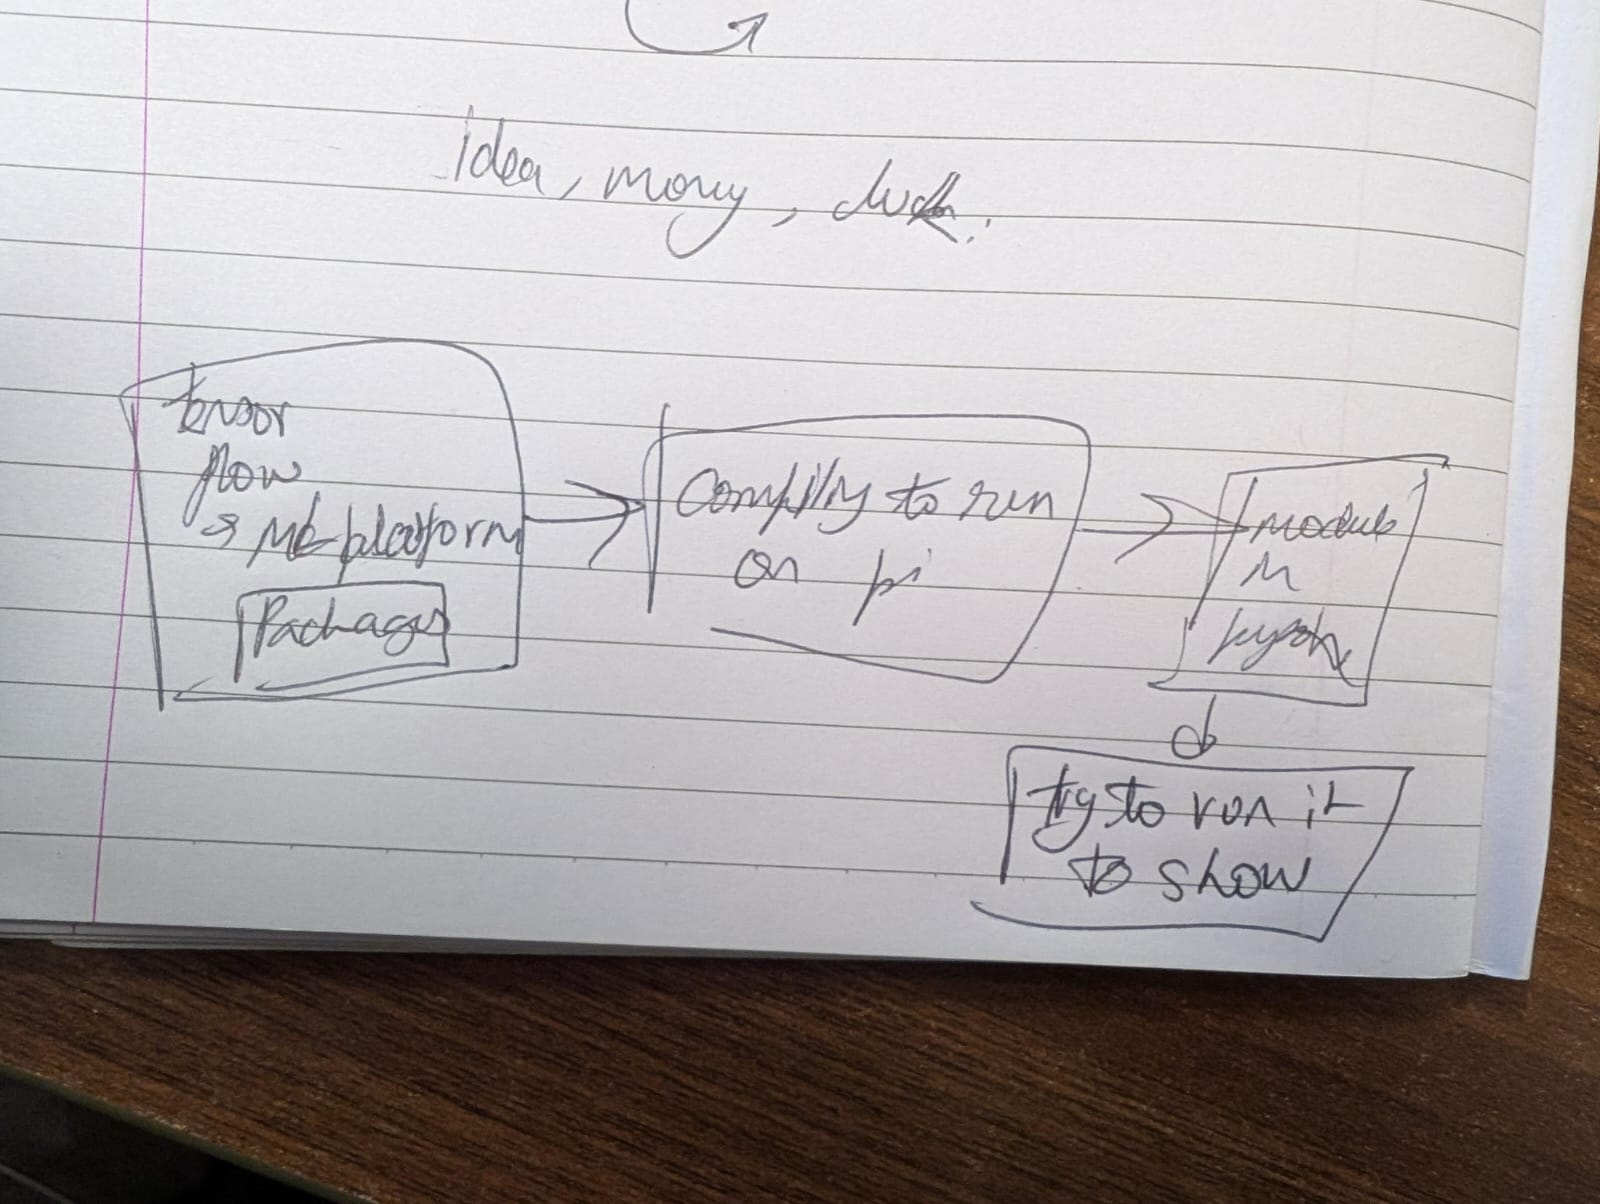 idea, money, luck.
tensor
flow
→ ML platform
Packages
Compiling to run
on pi
module
in
try to run it
to show